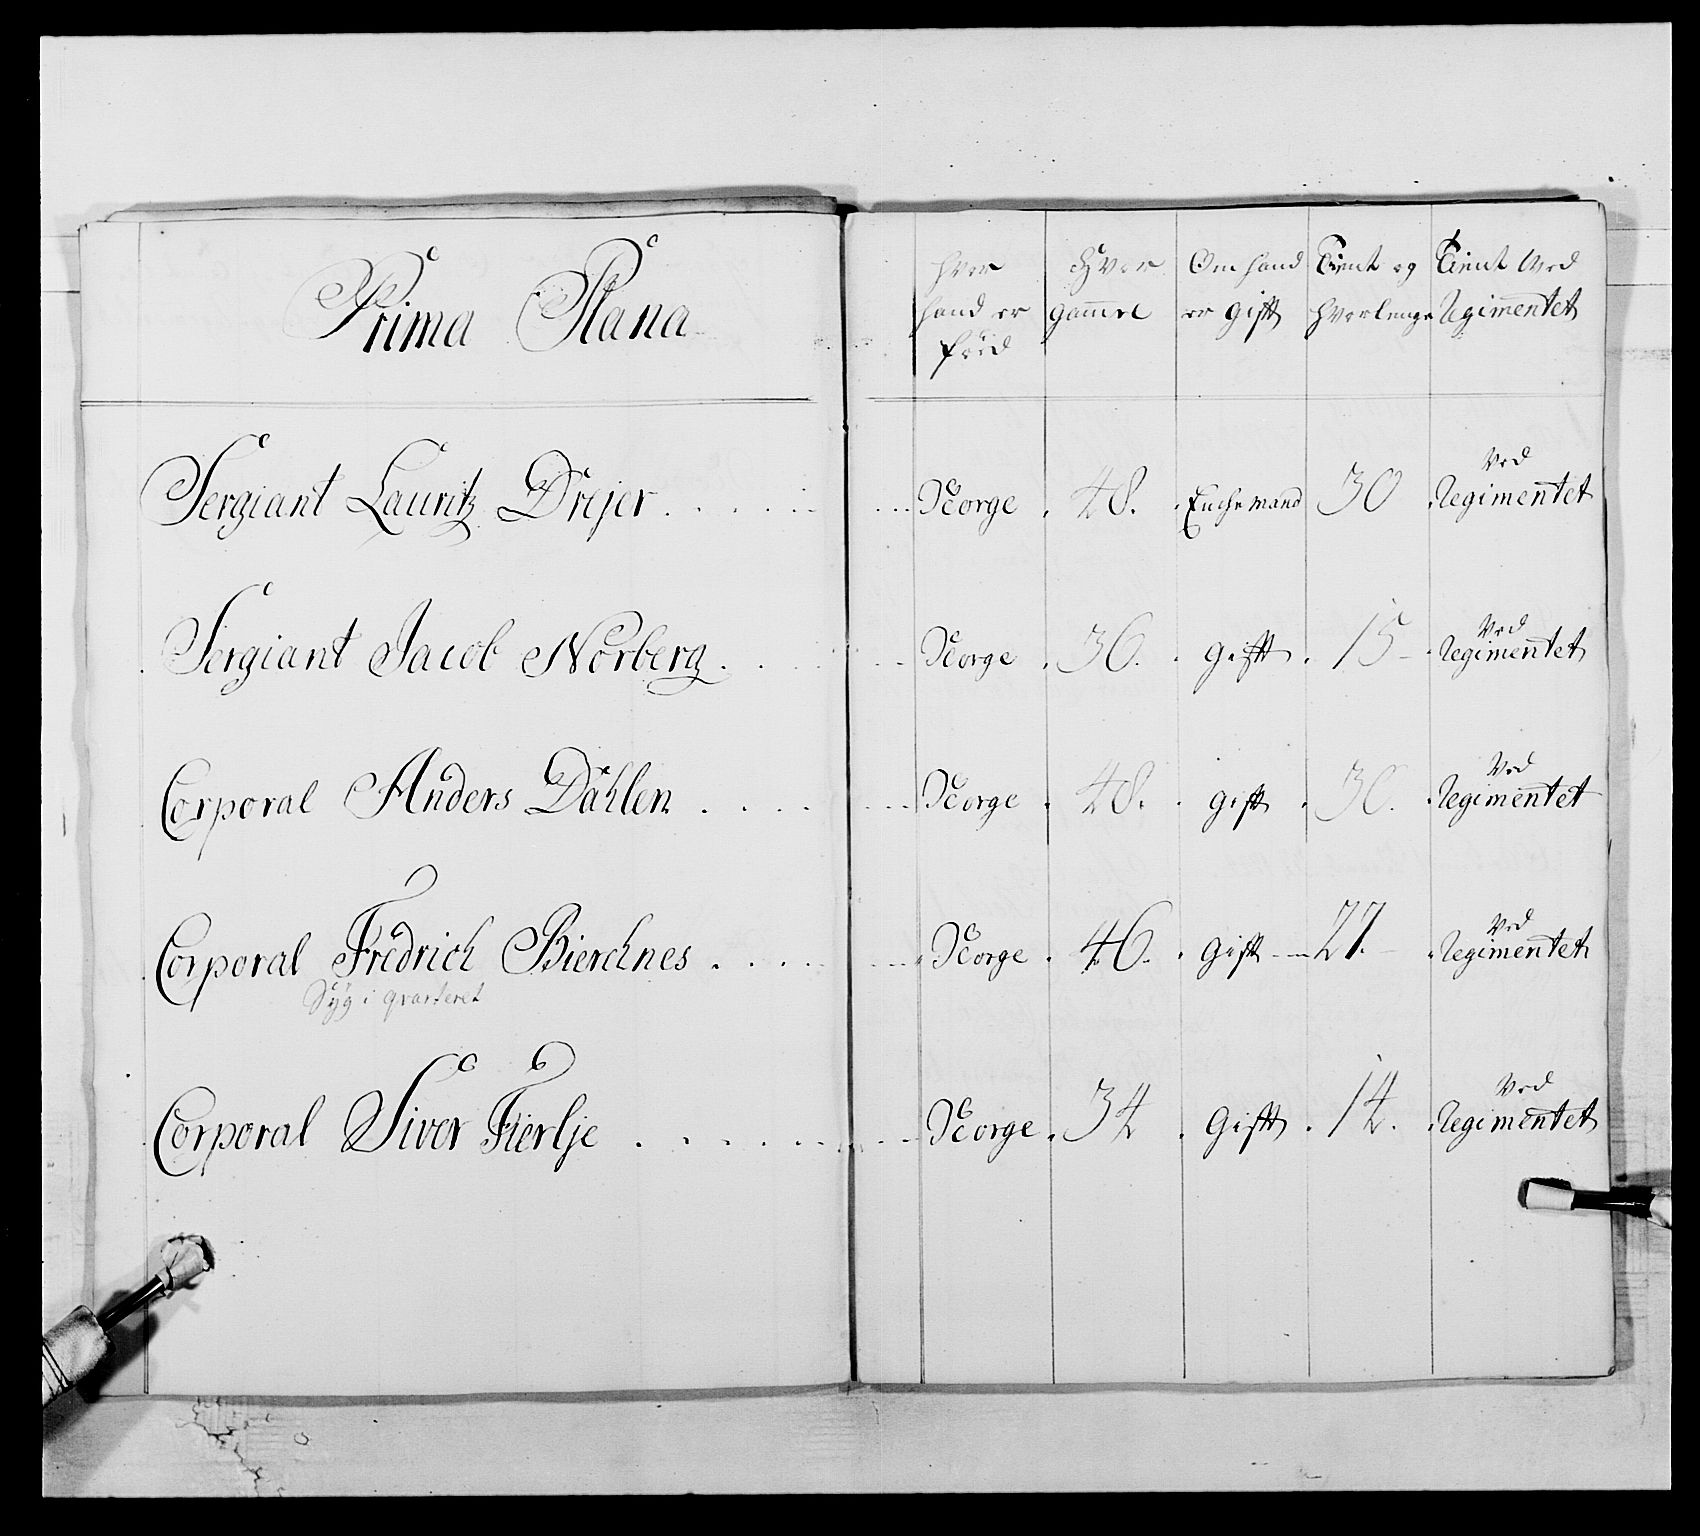 Prima Plana
hvor hand er föd
Hvor gam̄el
Om hand er gift
Tient og hvorlenge
Tient Ved Regimentet
Sergiant Lauritz Drejer . . . . . . Norge . 48. . Enchemand 30 . Ved Regimentet
Sergiant Jacob Norberg . . . . . Norge . 36. . gift . 15 – . Ved Regimentet
Corporal Anders Dahlen . . . . . Norge . 48. . gift . 30. . Ved Regimentet
Corporal Fredrich Bierchnes . . . . . Norge . 46. . gift – 27. – . Ved Regimentet
Syg i qvarteret
Corporal Siver Fierlje . . . . . . Norge . 34 . Gift . 14. . Ved Regimentet